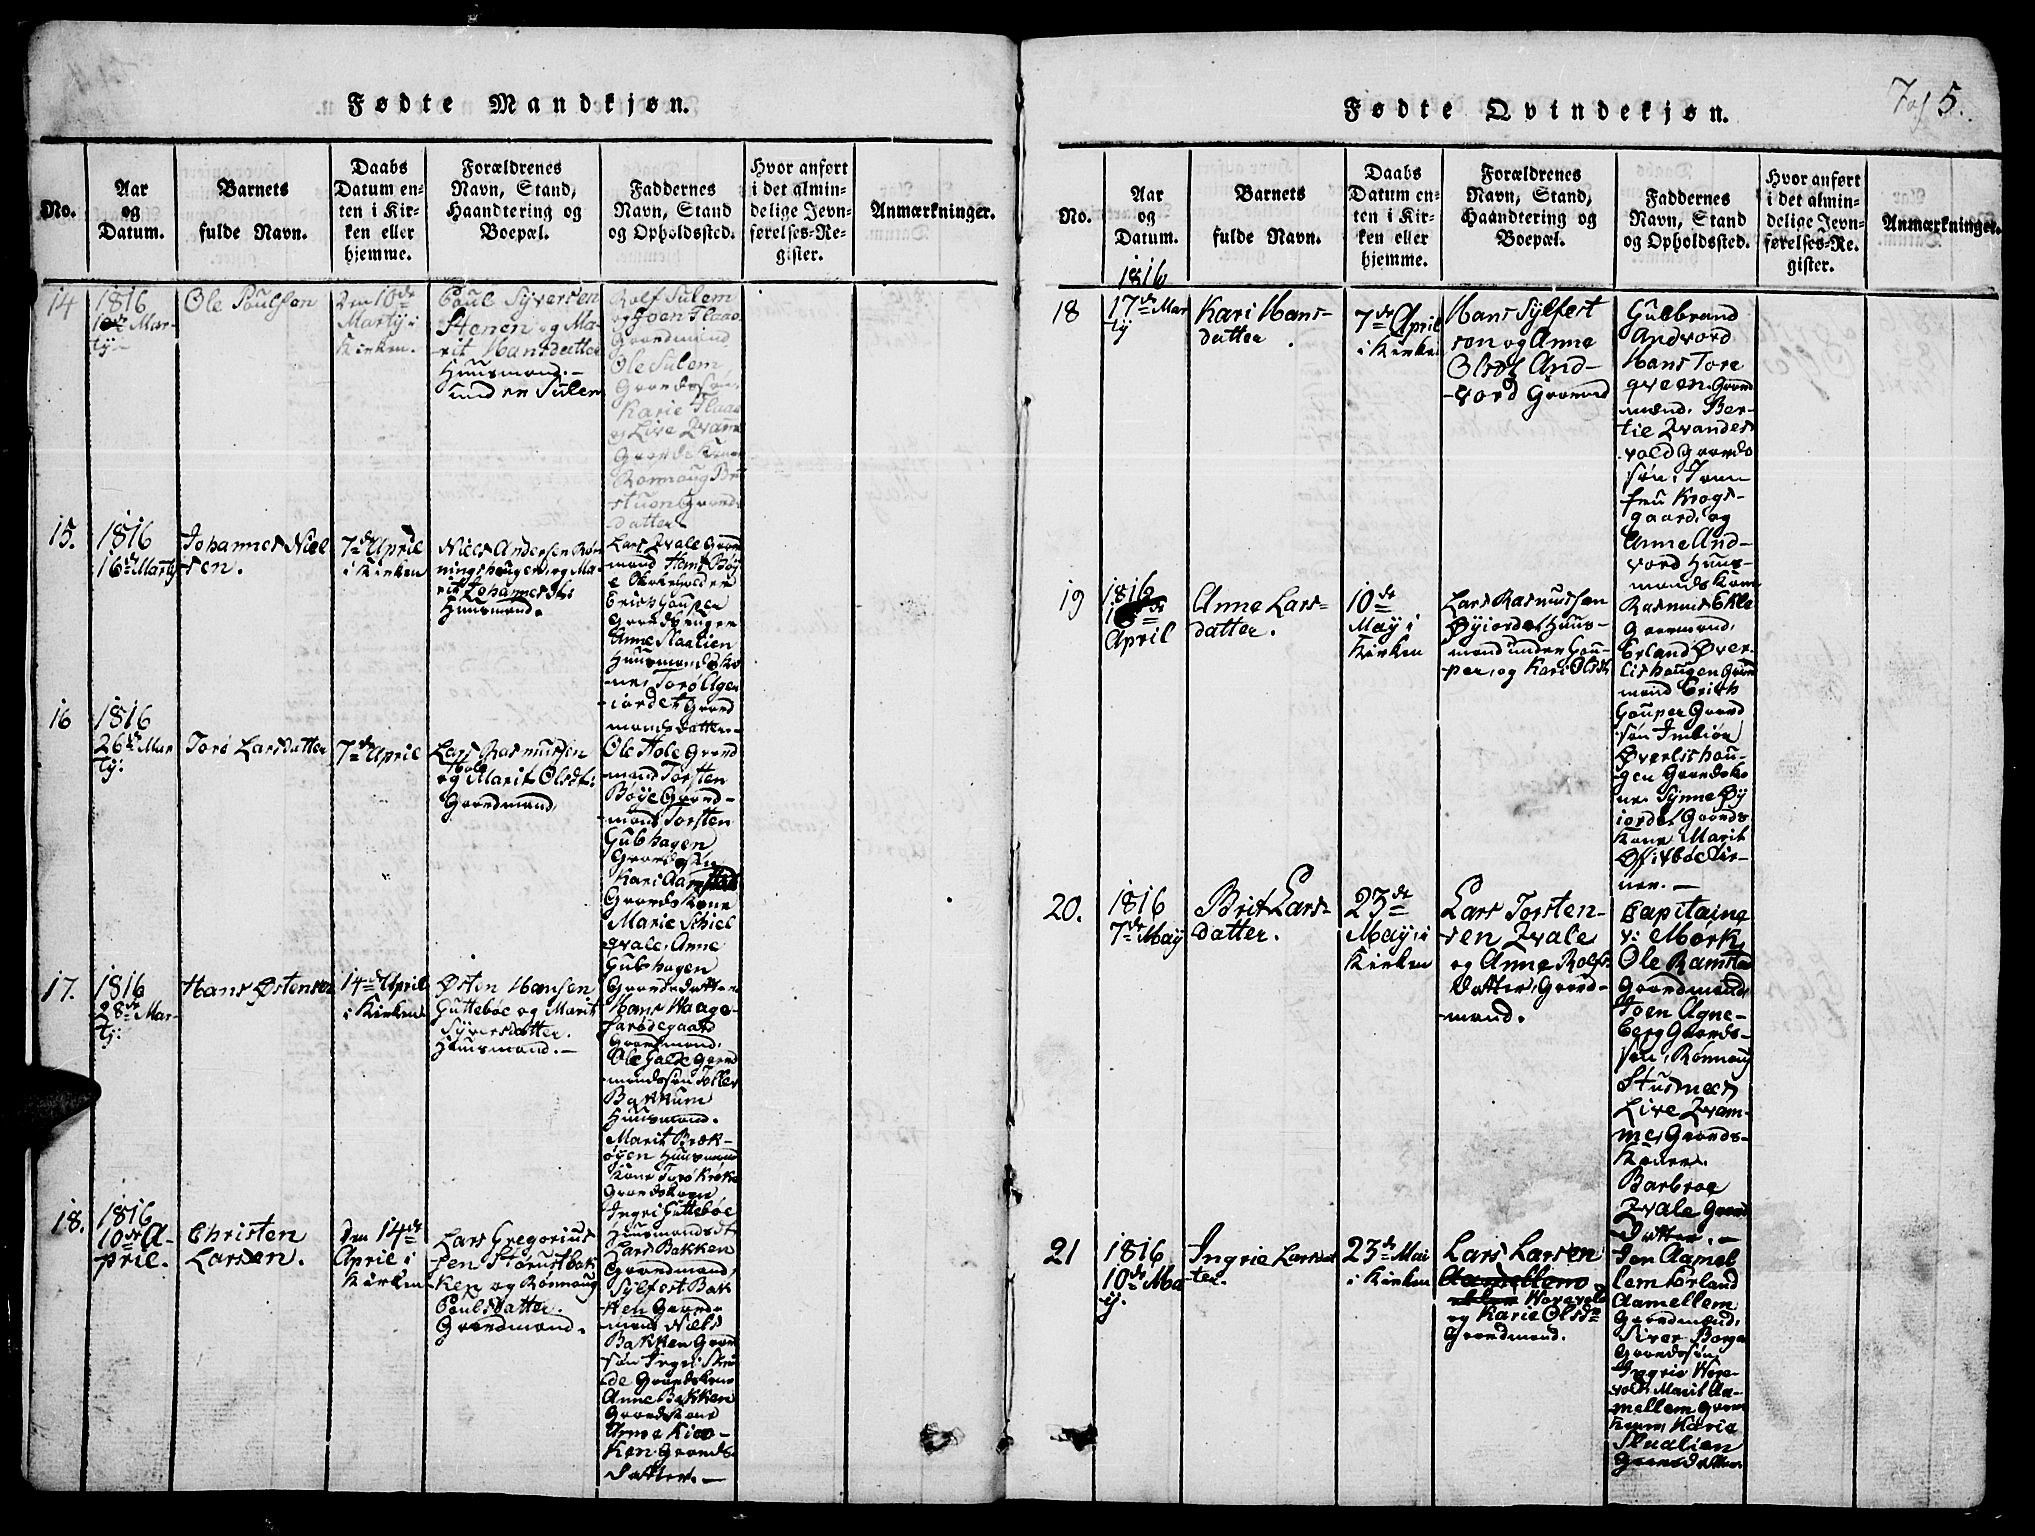 Fødte Mandkjøn.
No.
Aar
og
Datum.
Barnets
fulde Navn.
Daabs
Datum en-
ten i Kir-
ken eller
hjemme.
Forældrenes
Navn, Stand,
Haandtering og
Boepæl.
Faddernes
Navn, Stand
og Opholdssted.
Hvor anført
i det almin-
delige Jevn-
førelses-Re-
gister.
Anmærkninger.
14
1816
Mar-
tij-
Ole Poulsen
Den 10de
Martij i
Kirken.
Poul Syversen
Stenen og Ma-
rit Hansdatter
Huusmand.-
under Sulem
Rolf Sulem
og Joen Flaao
Gaardmænd
Ole Sulem
Gaardssøn,
Karie Flaao
og Live Qvame
Rønnoug
Gaards
datter
15.
1816
16de Martij
Johannes Niel
sen.
7de April
i Kirken
Niels Andersen Røn
ningshougen, og Ma-
rit Johannesdtr
Huusmand.
Lars Qvale Gaard
mand Hans Bøy
Erich Gouper
Anne Slaatien
Huusmandsko
ne, Torø Ager
iordet Gaard
mandsdatter-
16
1816
26de Mar
tij:
Torø Larsdatter
7de April
Lars Rasmussen
Hole
og Marit Olsdt:
Gaardmand.
Ole Hole Gaard
mand Torsten
Bøye Gaard-
mand Torsten
Gubhagen
Gaardssøn
Kari
Gaardskone
Marie Schiel
qvale, Anne
Gubhagen
Gaardsdatter
17.
1816
28de Mar-
tij:
Hans Østensen
14de April
i Kirken
Østen Hansen
Guttebøe og Marit
Syversdatter.
Huusmand.-
Hans Haage-
Gaardmand.
Ole Galde Gaard
mandssøn Toller
Bakkum
Huusmand.
Marit Bræk-
øyen Huusmand
Kone Torø Kroke
Gaardskone
Ingri Guttebøe
Huusmandsdt
18.
1816
10de A-
pril.
Christen
Larsen.
Den 14de
April i
Kirken
Lars Gregorius
sen Storustbak
ken og Rønnoug
Poulsdatter.
Gaardmand.
Lars Bakken
Gaardmand,
Sylfest Bak
ken Gaard-
mand Niels
Bakken Gaard
søn Ingri
de Gaardskone
Anne Bakken
Gaardskone
Anne
ken Gaards-
datter.-

Fødte Qvindekjøn.
5.
No.
Aar
og
Datum.
Barnets
fulde Navn.
Daabs
Datum en-
ten i Kir-
ken eller
hjemme.
Forældrenes
Navn, Stand,
Haandtering og
Boepæl.
Faddernes
Navn, Stand
og Opholdssted.
Hvor anført
i det almin-
delige Jevn-
førelses-Re-
gister.
Anmærkninger.
18
1816
17de Mar
tij
Kari Hans-
datter
7de April
i Kirken
Hans Sylfest
sen og Anne
Olsdt And-
vord Gaardmd
Gulbrand
Andvord
Hans Tore
qveen Gaard
mænd, Ber-
tie Qvandes
vold Gaards
søn, Jom
fru Krogs-
gaard, og
Anne And-
vord Huus-
mandskone
19
1816
April
Anne Lars-
datter.
10de
May i
Kirken
Lars Rasmussen
Øyiordet Huus-
mand under Gou-
per, og Kari Olsdt
Rasmus Ekle
Gaardmand,
Erland Øver-
lishaugen Gaard
mand Erich
Gouper Gaard
søn Imbiør
Øverlishau-
gen Gaardsko
ne, Synne Øy
iordet Gaards
Kone Marit
20.
1816
7de May
Brit Lars-
datter.
23de
May, i
Kirken
Lars Torsten-
sen Qvale
og Anne Rolfs-
datter, Gaard-
mand.
Capitaine
v: Mørk,
Ole Ramstad
Gaardmand,
Joen Agne-
berg Gaards-
søn, Rønnoug
Stusnæss
Live Qvam-
me, Gaards-
Koner.
Barbroe
Qvale Gaard
datter.-
21
1816
10de Ma
ij.
Ingrie Larsdat
ter.
23de Mai
i Kirken
Lars Larsen
Horevold
og Karie Olsdtr
Gaardmand.
Jen Aamel
lem Erland
Aamellem
Gaardmænd,
Siver Borga
Gaardssøn,
Ingrie Hore-
vold, Marit Aa-
mellem Gaard
koner, Karie
Slaalien
Gaardsdatter.